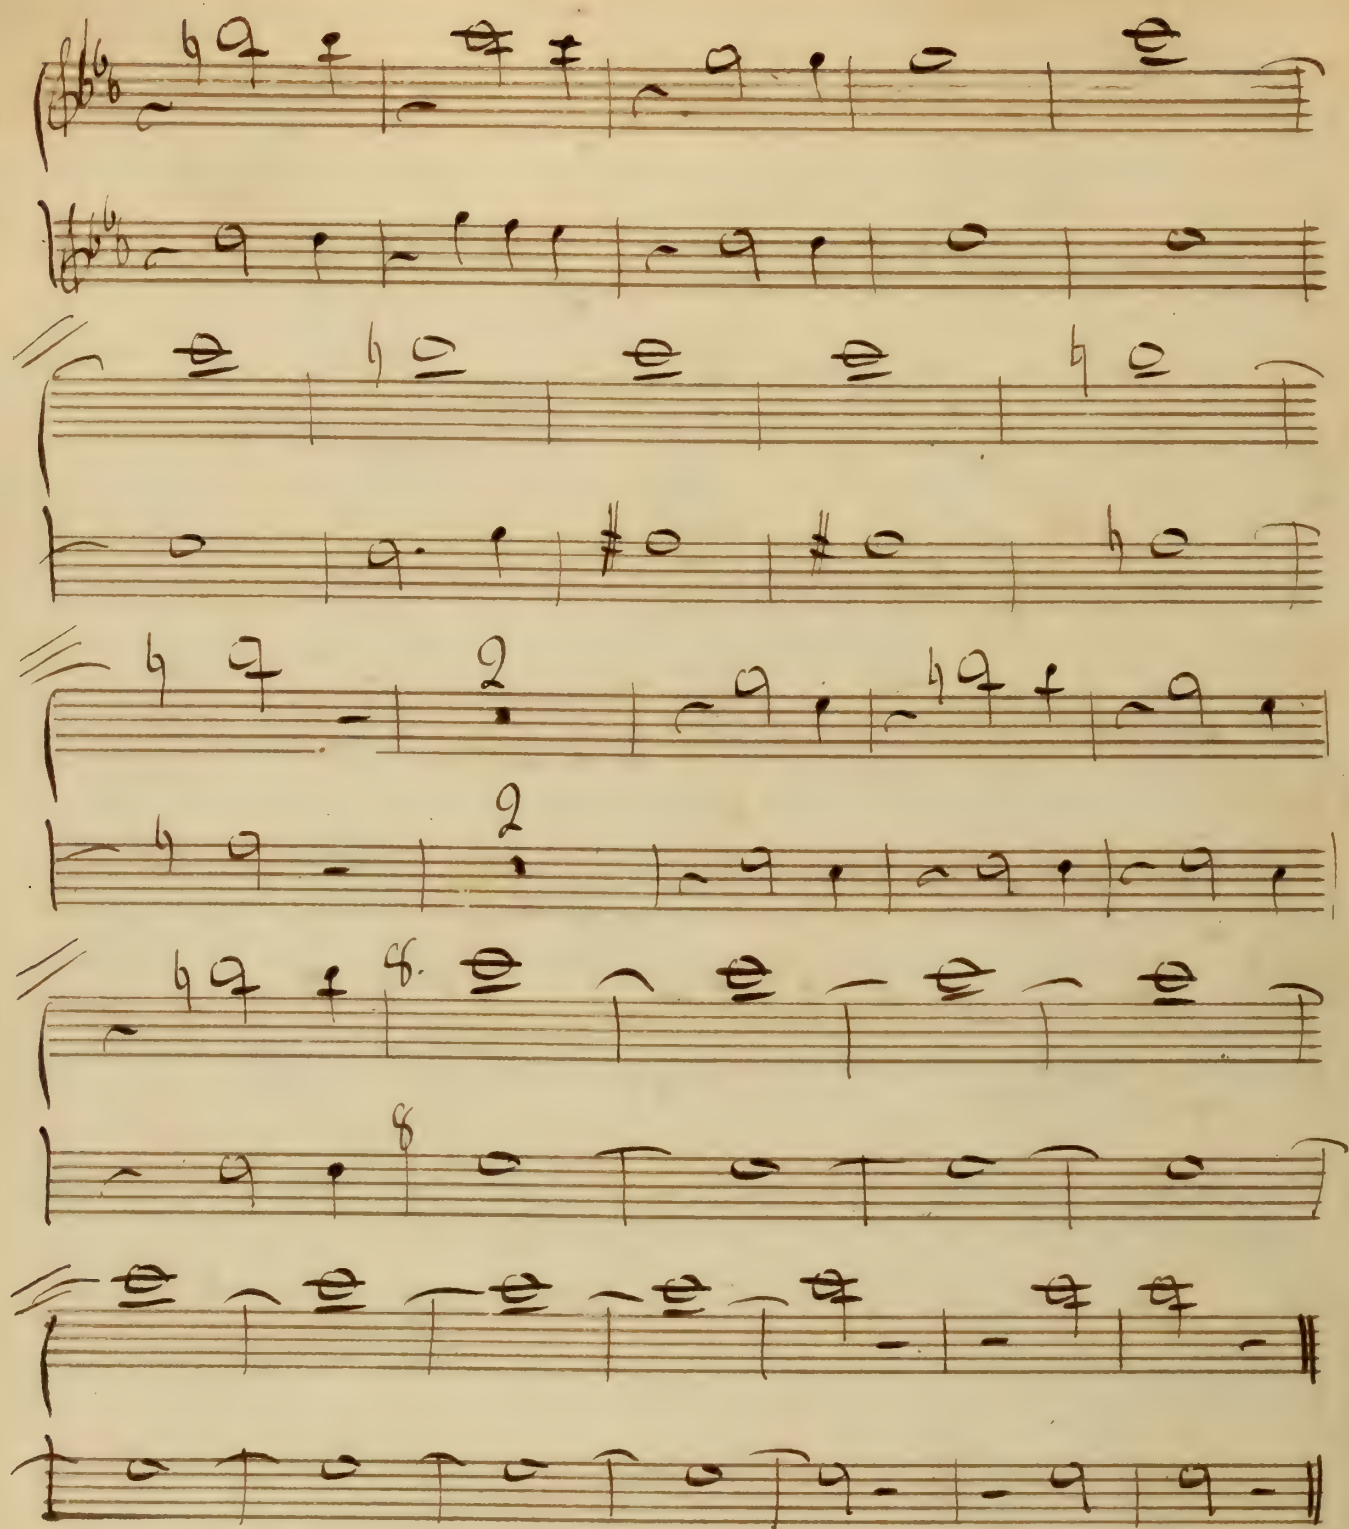 2
2
8.
8